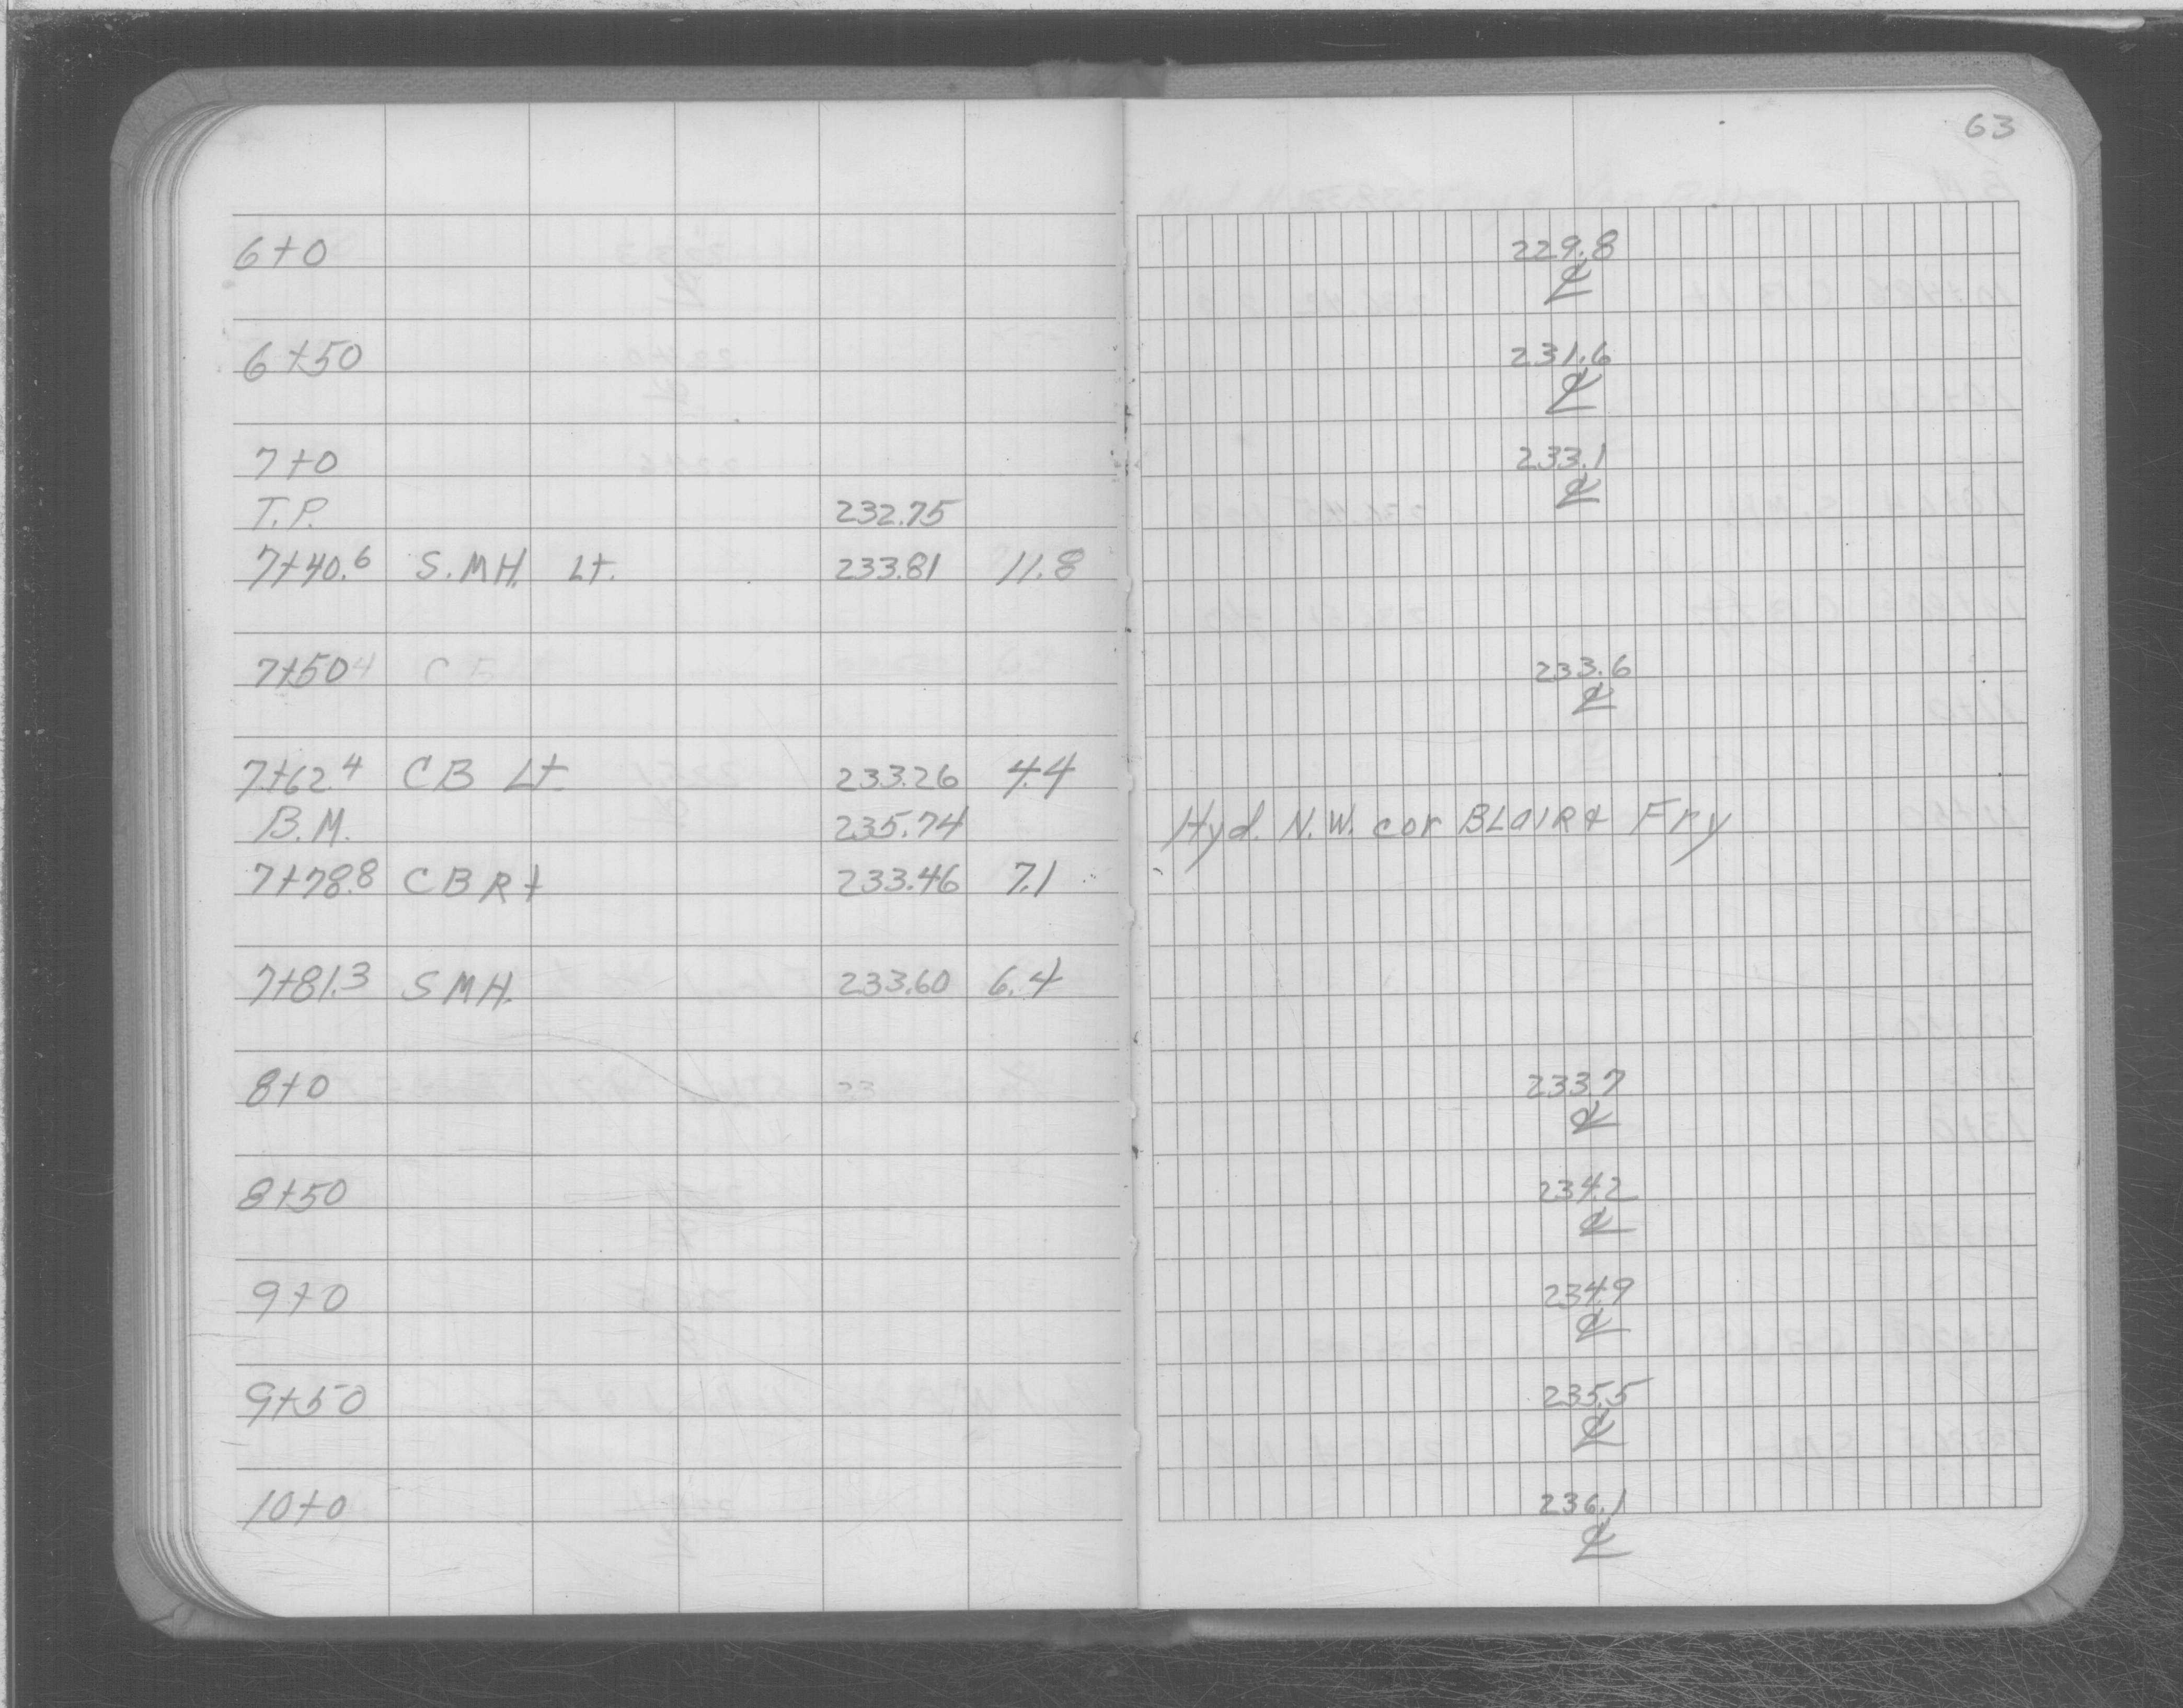 63
6+0 229.8
℄
6+50 231.6
℄
7+0 233.1
℄
T.P. 232.75
7+40.6 S.MH. Lt. 233.81 11.8
7+50 233.6
℄
7+62.4 CB Lt. 233.26 4.4
B.M. 235.74 Hyd. N.W. cor BLAIR & Fry
7+78.8 CB Rt 233.46 7.1
7+81.3 SMH. 233.60 6.4
8+0 233.7
℄
8+50 234.2
℄
9+0 234.9
℄
9+50 235.5
℄
10+0 236.1
℄